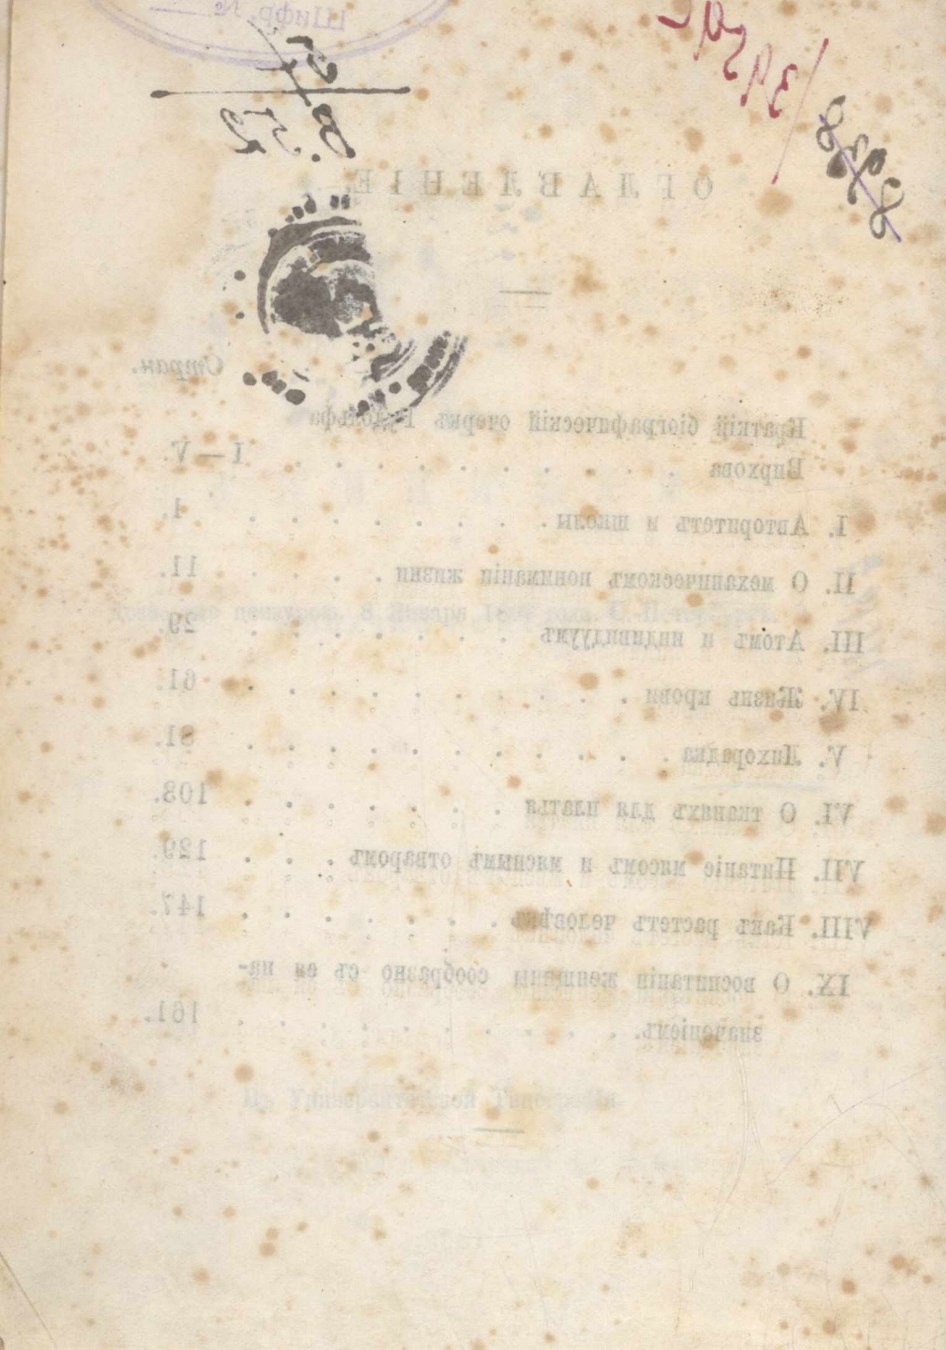 Шифр. №
ОГЛАВЛЕНІЕ.
Стран.
Краткій біографическій очеркъ Рудольфа
Вирхова . . . . . . . . . . I—V.
I. Авторитетъ и школы . . . . . . . . 1.
II. О механическомъ пониманіи жизни . . . . 11.
III. Атомъ и индивидуумъ . . . . . . . . 29.
IV. Жизнь крови . . . . . . . . . . 61.
V. Лихорадка . . . . . . . . . . 81.
VI. О тканяхъ для платья . . . . . . . 108.
VII. Питаніе мясомъ и мяснымъ отваромъ . . . . 129.
VIII. Какъ растетъ человѣкъ . . . . . . . 147.
IX. О воспитаніи женщины сообразно съ ея на-
значеніемъ. . . . . . . . . . . 161.
Января
Университетской Типографіи